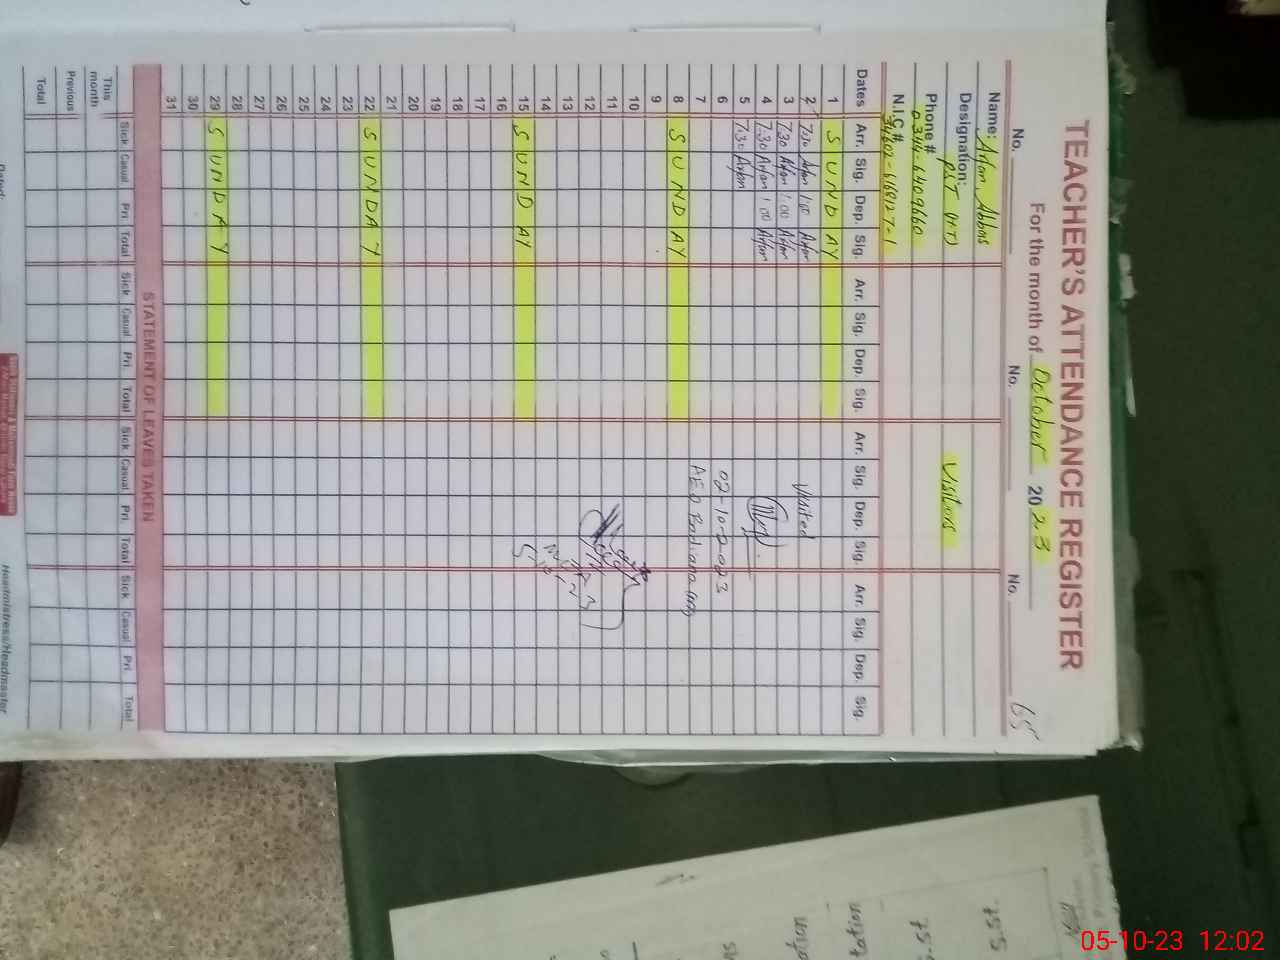 TEACHER'S ATTENDANCE REGISTER
65
For the month of October 2023
No. No. No.
Name: Arfan Abbas
Designation: PST (NT)
Visitors
Phone #
0344-6409660
N.I.C #
Dates Arr. Sig. Dep. Sig. Arr. Sig. Dep. Sig. Arr. Sig. Dep. Sig. Arr. Sig. Dep. Sig.
1 SUNDAY
2 7:30 Arfan 1:00 Arfan Visited
3 7:30 Arfan 1:00 Arfan
4 7:30 Arfan 1:00 Arfan
5 7:30 Arfan
6 02-10-2023
7 AEO
8 SUNDAY
9
10
11
12
13
14
15 SUNDAY
16
17
18
19
20
21
22 SUNDAY
23
24
25
26
27
28
29 SUNDAY
30
31
STATEMENT OF LEAVES TAKEN
Sick Casual Pri Total Sick Casual Pri Total Sick Casual Pri Total Sick Casual Pri Total
This month
Previous
Total
Headmistress/Headmaster
05-10-23 12:02